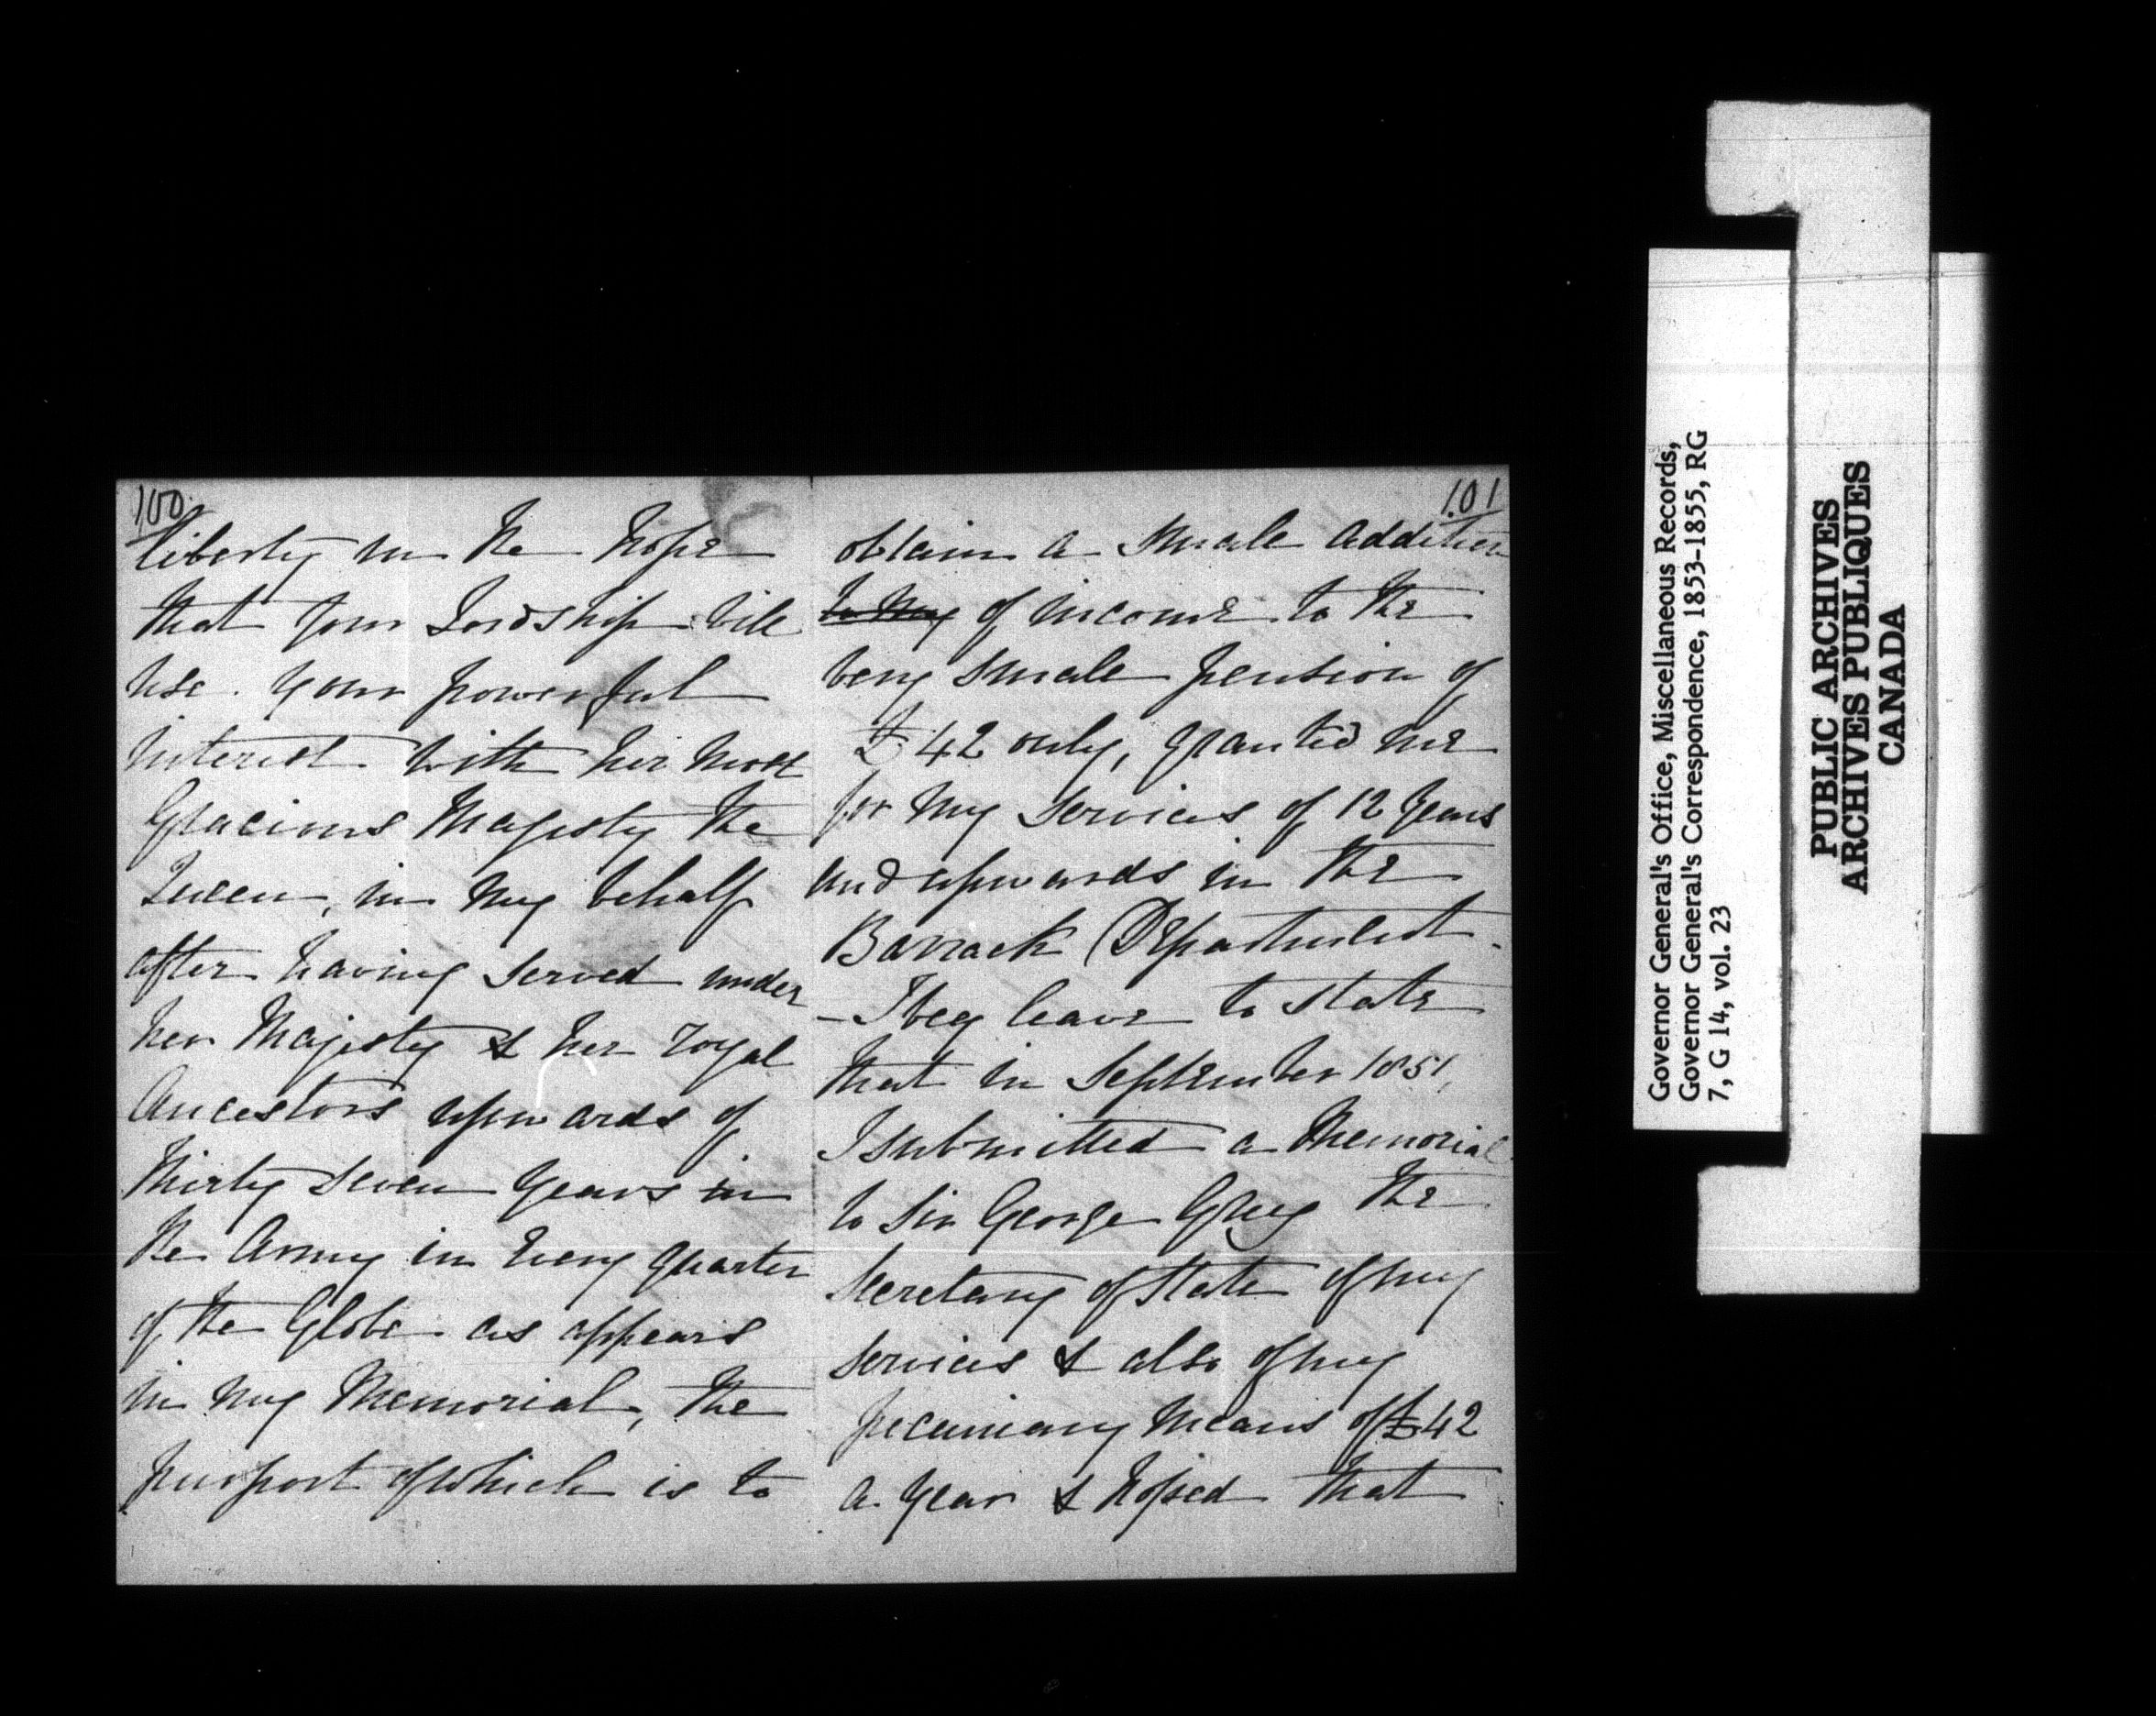 100
liberty in the hope
that your Lordship will
use your powerful
interest with her most
Gracious Majesty the
Queen, in my behalf
after having served under
her Majesty & her royal
Ancestors upwards of
thirty seven years in
the Army in every quarter
of the Globe as appears
in my Memorial, the
purport of which is to
101
obtain a small addition
to my of income to the
very small pension of
£42 only, granted me
for my services of 12 years
and upwards in the
Barrack Department.
- I beg leave to state
that in September 1851,
I submitted a Memorial
to Sir George Grey the
Secretary of State of my
services & also of my
pecuniary means of £42
a year & hoped that
Governor General's Office, Miscellaneous Records,
Governor General's Correspondence, 1853-1855, RG
7, G 14, vol. 23
PUBLIC ARCHIVES
ARCHIVES PUBLIQUES
CANADA